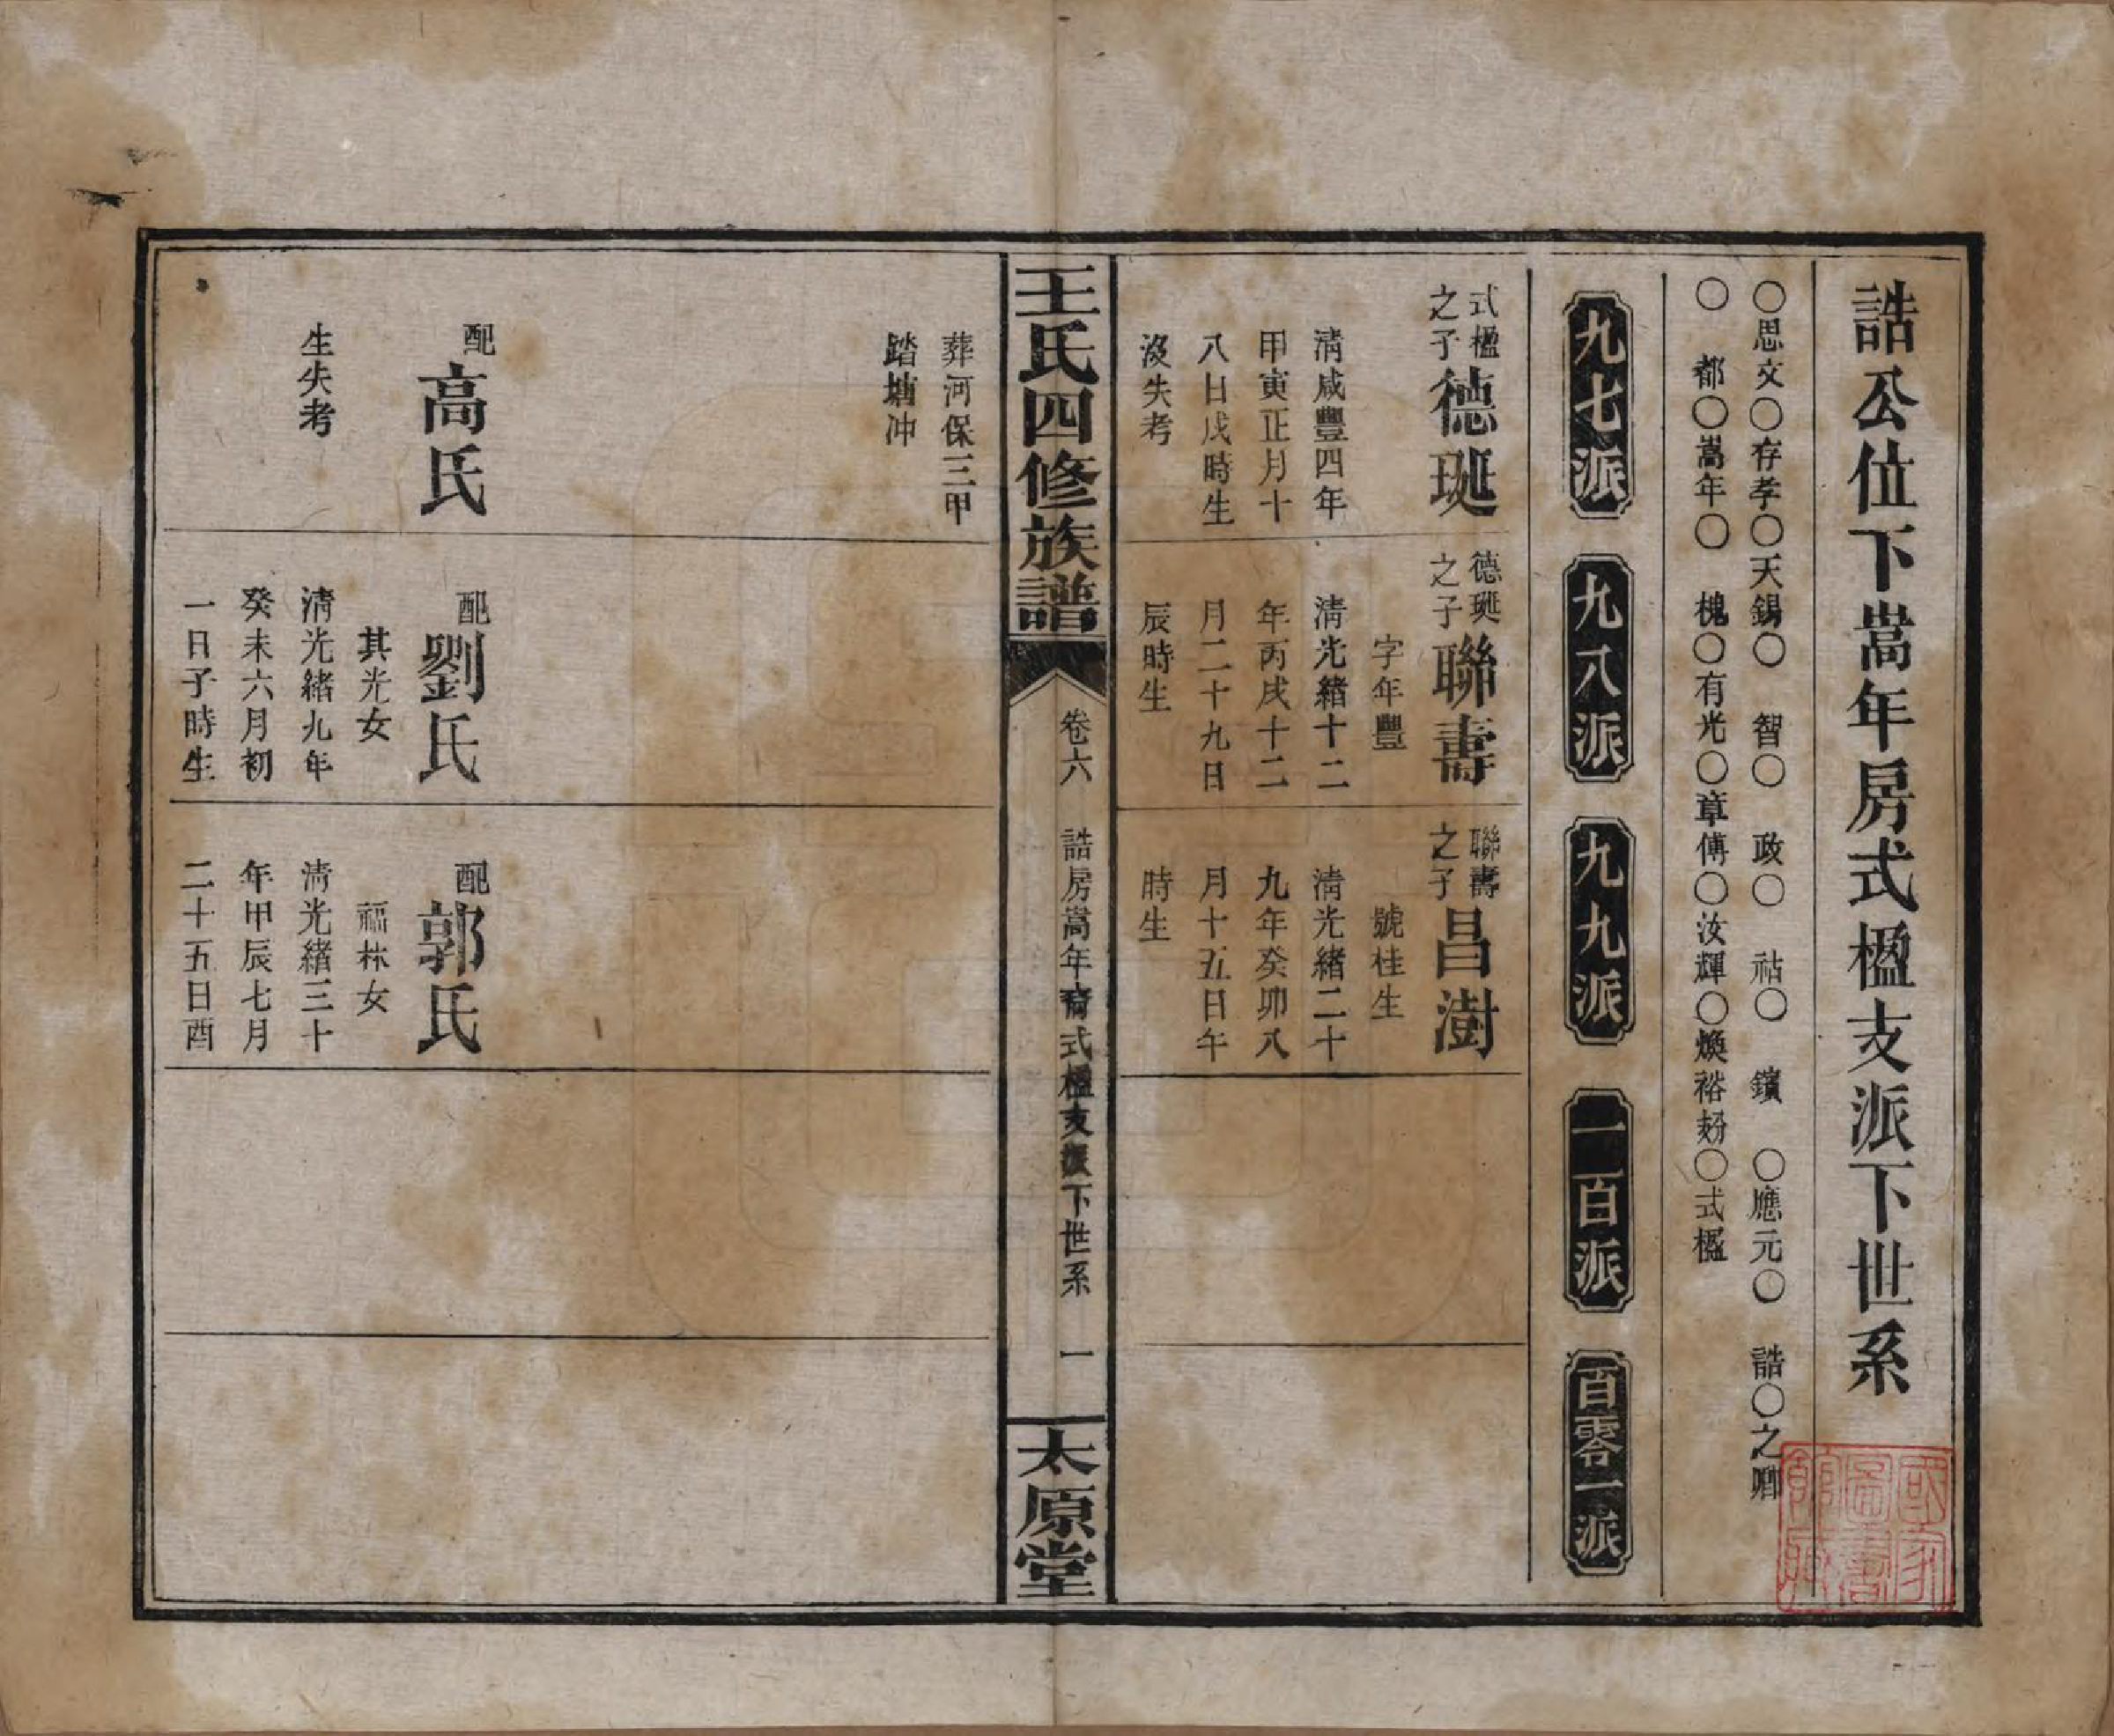 誥公位下嵩年房式楹支派下世系
〇思文〇存孝〇天錫〇 智〇 政〇 祜〇 鑌 〇應元〇 誥〇之卿
〇 都〇嵩年〇 槐〇有光〇章傅〇汝輝〇煥裕〇式楹
九七派
九八派
九九派
一百派
百零一派
式楹
之子
德珽
清咸豐四年
甲寅正月十
八日戌時生
沒失考
德珽
之子
聯壽
字年豐
清光緒十二
年丙戌十二
月二十九日
辰時生
聯壽
之子
昌澍
號桂生
清光緒二十
九年癸卯八
月十五日午
時生
王氏四修族譜
卷六
誥房嵩年裔式楹支派下世系
一
太原堂
葬河保三甲
踏塘冲
配高氏
生失考
配劉氏
其光女
清光緒九年
癸未六月初
一日子時生
配郭氏
福林女
清光緒三十
年甲辰七月
二十五日酉
國家
圖書
館藏